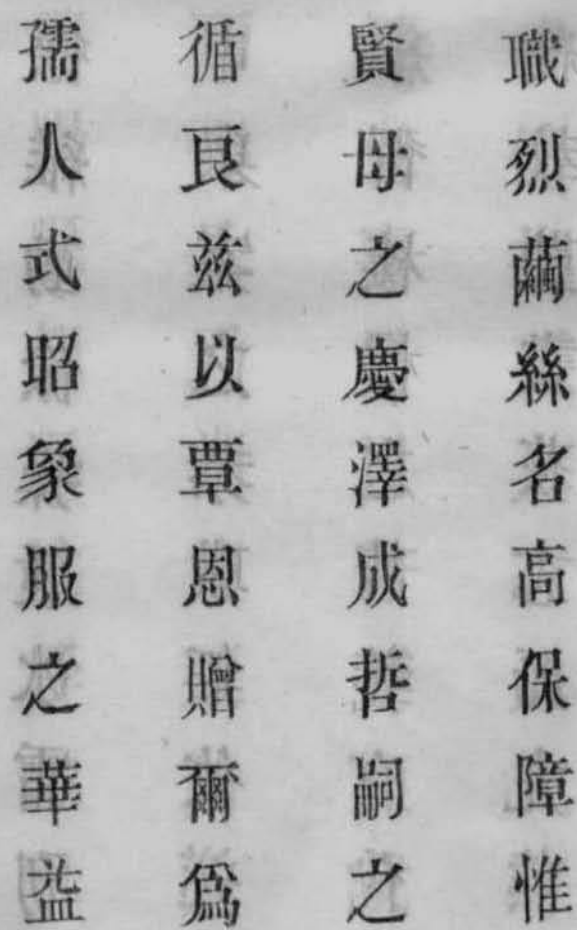 職烈繭絲名高保障惟
賢母之慶澤成哲嗣之
循良茲以覃恩贈爾爲
孺人式昭象服之華益